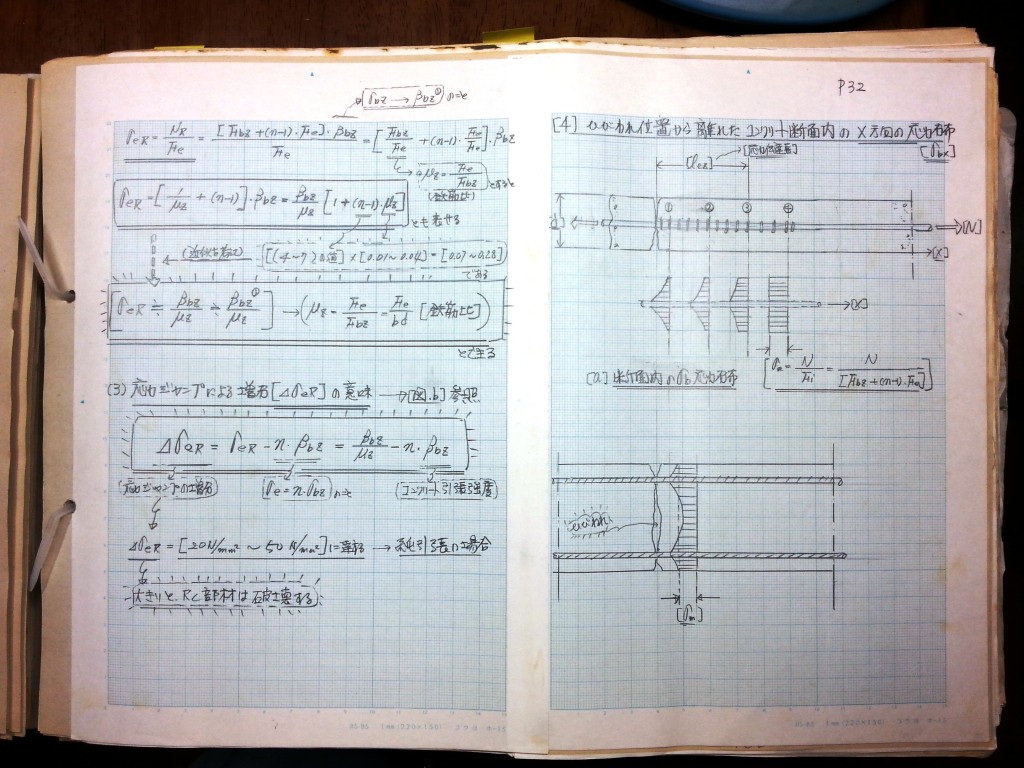 [σbz → βbz] のとき
σeR = NR/Fe = [Fbz+(n-1)・Fe]・βbz/Fe = [Fbz/Fe + (n-1)・Fe/Fe]・βbz
μz = Fe/Fbz とすると
(鉄筋比)
σeR = [1/μz + (n-1)]・βbz = βbz/μz [1+(n-1)・μz] とも表せる
[(4~7)の値] × [0.01~0.04] = [0.07~0.28]
である
[σeR ≒ βbz/μz ≒ βbz/μz] → (μz = Fe/Fbz = Fe/bd [鉄筋比])
とできる
(3) 応力ジャンプによる増分 [ΔσeR] の意味 → [図.b] 参照
ΔσeR = σeR - n・βbz = βbz/μz - n・βbz
(応力ジャンプの増分) (σe = n・σbz) のとき (コンクリート引張強度)
ΔσeR = [20N/mm² ~ 50N/mm²] に達する → 純引張の場合
大きいと RC部材は破壊する
P32
[4] ひびわれ位置から離れたコンクリート断面内のX方向の応力分布
[σbx]
[lez] [応力伝達長]
① ② ③ ④
d
→[N]
→[X]
→[X]
[a] 断面内のσb応力分布
[σm = N/Fi = N/[Fbz+(n-1)・Fe]]
ひびわれ
[σm]